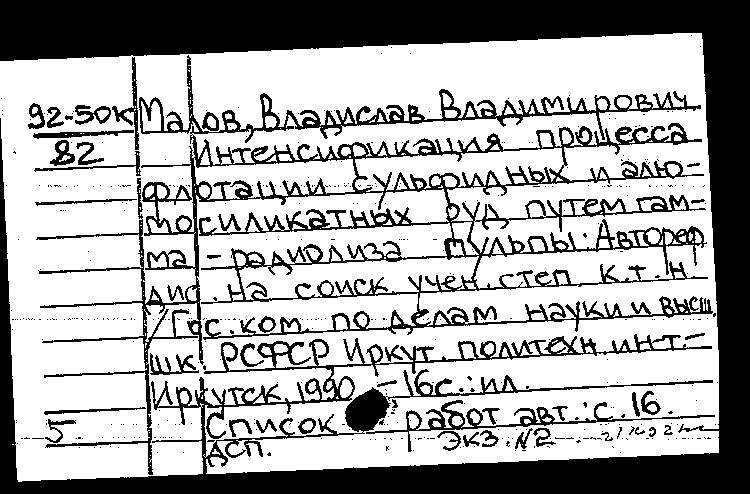 92-50к Малов, Владислав Владимирович
82 Интенсификация процесса
флотации сульфидных и алю-
мосиликатных руд путем гам-
ма-радиолиза пульпы: Автореф
дис. на соиск. учен. степ. к.т.н.
/Гос. ком. по делам науки и высш.
шк. РСФСР, Иркут. политехн. ин-т.-
Иркутск, 1990.-16с.:ил.
5. Список работ авт.:с.16.
дсп. экз. N2